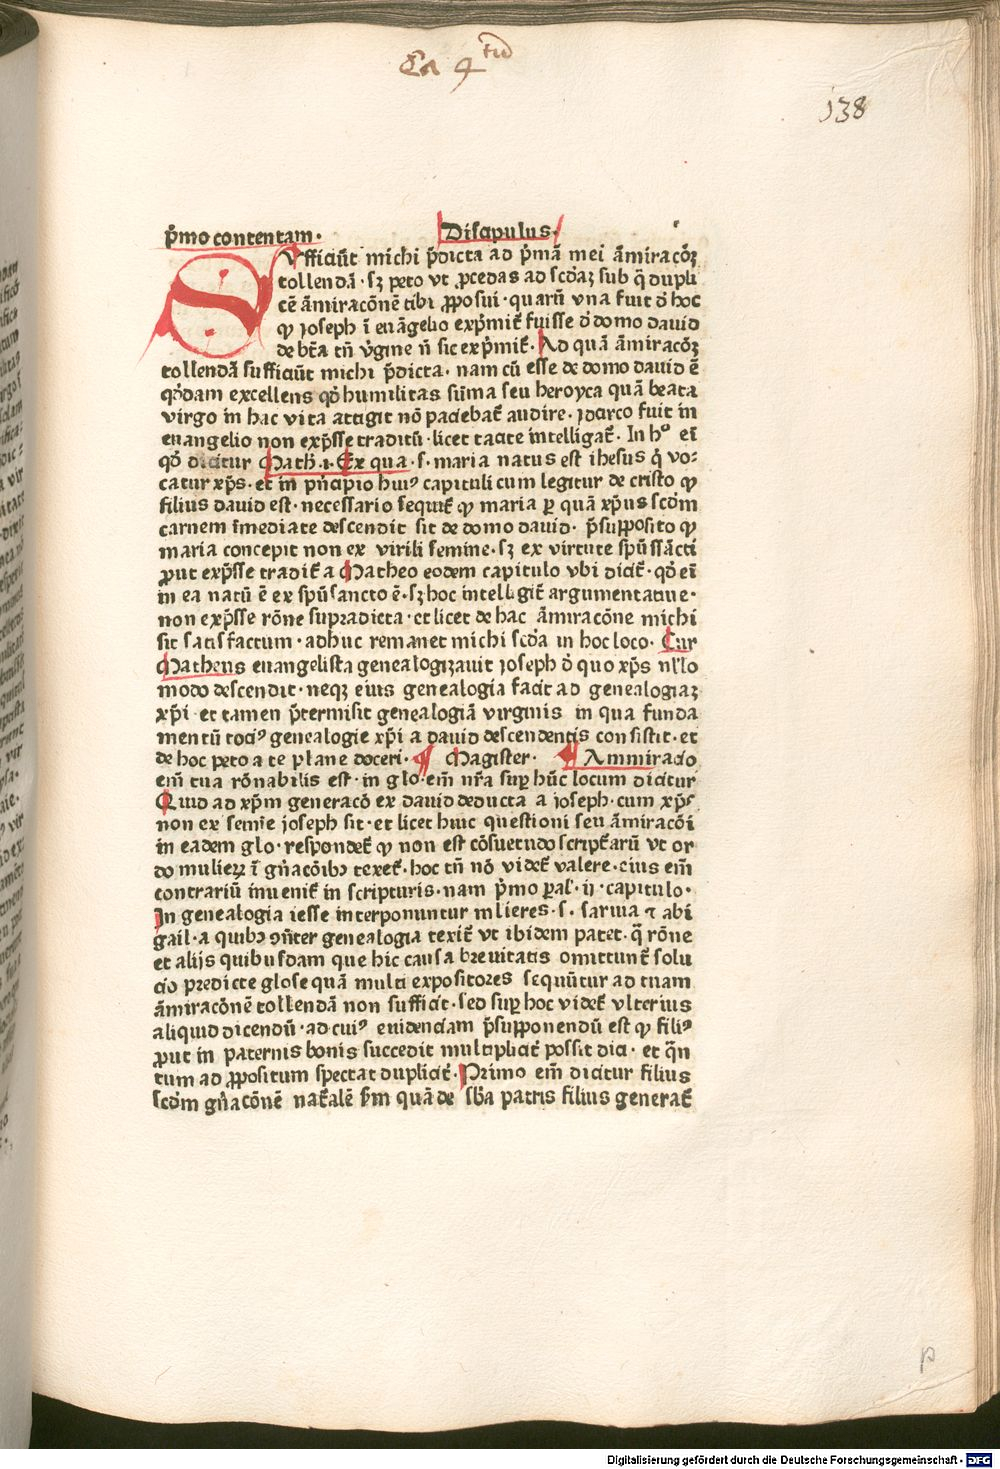 138
p̄mo contentam. Discipulus.
Sufficiūt michi p̄dicta ad p̄mā mei āmiracōꝫ
tollendā · sꝫ peto vt ꝓcedas ad scd̄aꝫ sub q̄ dupli
cē āmiracōnē tibi ꝓposui · quarū vna fuit d̄ hoc
ꝙ ioseph ī euāgelio exp̄mit̄ fuisse d̄ domo dauid
de btā tn̄ v̄gine n̄ sic exp̄mit̄. Ad quā āmiracōꝫ
tollendā sufficiūt michi p̄dicta · nam cū esse de domo dauid ē
qd̄dam excellens qd̄ humilitas sūma seu heroyca quā beata
virgo in hac vita attigit nō paciebat̄ audire · idarco fuit in
euangelio non exp̄sse traditū · licet tacite intelligat̄. In hº ei̅
qd̄ dicitur Math̄ .i. Ex qua · s. maria natus est ihesus q̄ vo-
catur xp̄s · et in p̄ncipio huiꝰ capituli cum legitur de cristo ꝙ
filius dauid est · necessario sequit̄ ꝙ maria ꝑ quā xp̄us scd̄m
carnem īmediate descendit sit de domo dauid · p̄supposito ꝙ
maria concepit non ex virili semine · sꝫ ex virtute spūssācti
ꝓut exp̄sse tradit̄ a Matheo eodem capitulo vbi dicit̄ · qd̄ ei̅
in ea natū ē ex spū sancto ē · sꝫ hoc intelligit̄ argumentatiue ·
non exp̄sse rōne supradicta · et licet de hac āmiracōne michi
sit satisfactum · adhuc remanet michi scd̄a in hoc loco · Cur
Matheus euangelista genealogizauit ioseph d̄ quo xp̄s nllo
modo descendit · neqꝫ eius genealogia facit ad genealogiaꝫ
xp̄i · et tamen p̄termisit genealogiā virginis in qua funda
mentū tociꝰ genealogie xp̄i a dauid descendentis consistit · et
de hoc peto a te plane doceri · ¶ Magister · ¶ Ammiracio
em̄ tua rōnabilis est · in glo · em̄ nr̄a suꝑ hūc locum dicitur
Quid ad xp̄m generacō ex dauid deducta a ioseph · cum xp̄s
non ex semīe ioseph sit · et licet huic questioni seu āmiracōi
in eadem glo · respondet̄ ꝙ non est cōsuetudo script̄arū vt or
do mulieꝝ ī gn̄acōibꝰ texet̄ · hoc tn̄ nō videt̄ valere · eius em̄
contrariū inuenit̄ in scripturis · nam p̄mo ꝑal̄ · ij · capitulo ·
In genealogia iesse interponuntur mlieres · s. saruia ⁊ abi
gail · a quibꝰ ꝯn̄ter genealogia texit̄ vt ibidem patet · q̄ rōne
et alijs quibusdam que hic causa breuitatis omittunt̄ solu
cio predicte glose quā multi expositores sequūtur ad tuam
āmiracōnē tollendā non sufficit · sed suꝑ hoc videt̄ vlterius
aliquid dicendū · ad cuiꝰ euidenciam p̄supponendū est ꝙ filiꝰ
ꝓut in paternis bonis succedit multiplicit̄ possit dici · et q̄n
tum ad ꝓpositum spectat duplicit̄ · Primo em̄ dicitur filius
scd̄m gn̄acōnē nat̄alē s̄m quā de sb̄a patris filius generat̄
p
Digitalisierung gefördert durch die Deutsche Forschungsgemeinschaft - DFG